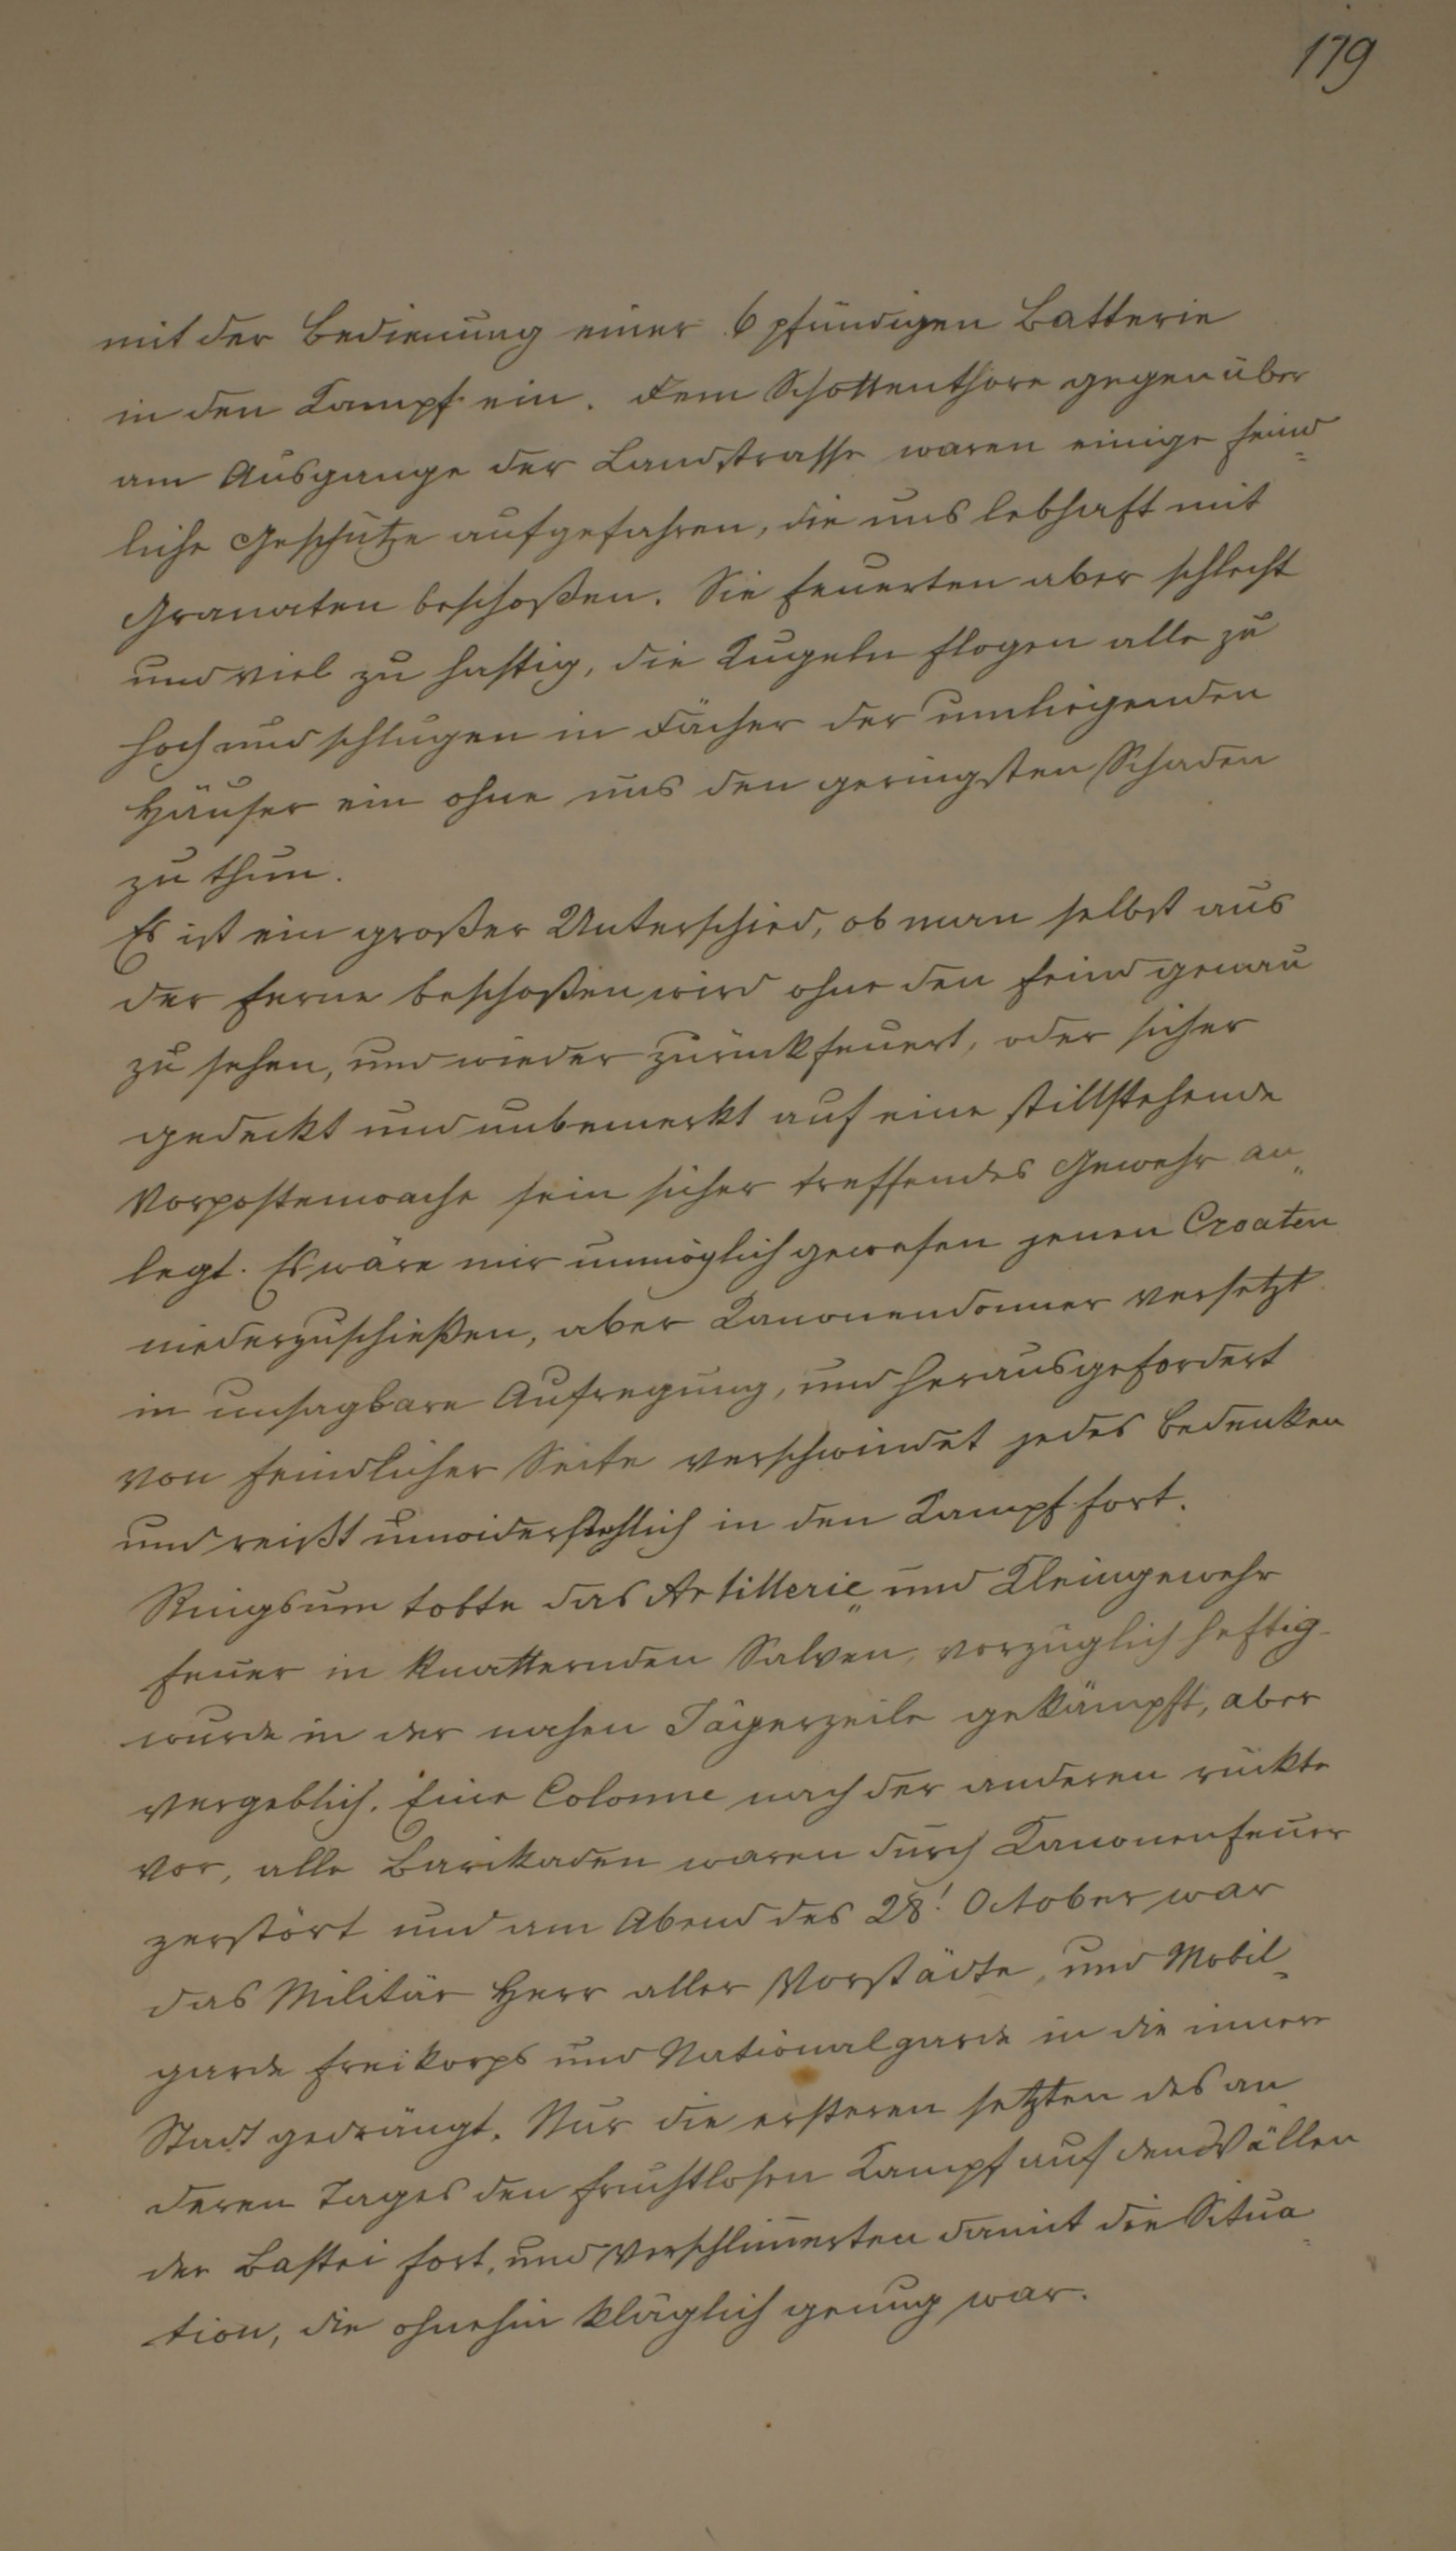 179
mit der Bedienung einer 6 pfündigen Batterie
in den Kampf ein. Dem Schottenthore gegenüber
am Ausgange der Landstrasse waren einige feind=
liche Geschütze aufgefahren, die uns lebhaft mit
Granaten beschoßen. Sie feuerten aber schlecht
und viel zu hastig, die Kugeln flogen alle zu
hoch und schlugen in Dächer der umliegenden
Häuser ein ohne uns den geringsten Schaden
zu thun.
Es ist ein großer Unterschied, ob man selbst aus
der Ferne beschoßen wird ohne den Feind genau
zu sehen, und wieder zurückfeuert, oder sicher
gedeckt und unbemerkt auf eine stillstehende
Vorpostenwache sein sicher treffendes Gewehr an„
legt. Es wäre mir unmöglich gewesen jenen Croaten
niederzuschießen, aber Kanonendonner versetzt
in unsagbare Aufregung, und herausgefordert
von feindlicher Seite verschwindet jedes Bedenken
und reißt unwiderstehlich in den Kampf fort.
Ringsum tobte das Artillerie„ und Kleingewehr
feuer in knatternden Salven, vorzüglich heftig
wurde in der nahen Jägerzeile gekämpft, aber
vergeblich. Eine Colonne nach der anderen rückte
vor, alle Barikaden waren durch Kanonenfeuer
zerstört und am Abend des 28! October war
das Militär Herr aller Vorstädte, und Mobil=
garde Freikorps und Nationalgarde in die innere
Stadt gedrängt. Nur die ersteren setzten des an
deren Tages den fruchtlosen Kampf auf den Wällen
der Bastei fort, und verschlim̄erten damit die Situa=
tion, die ohnehin kläglich genug war.